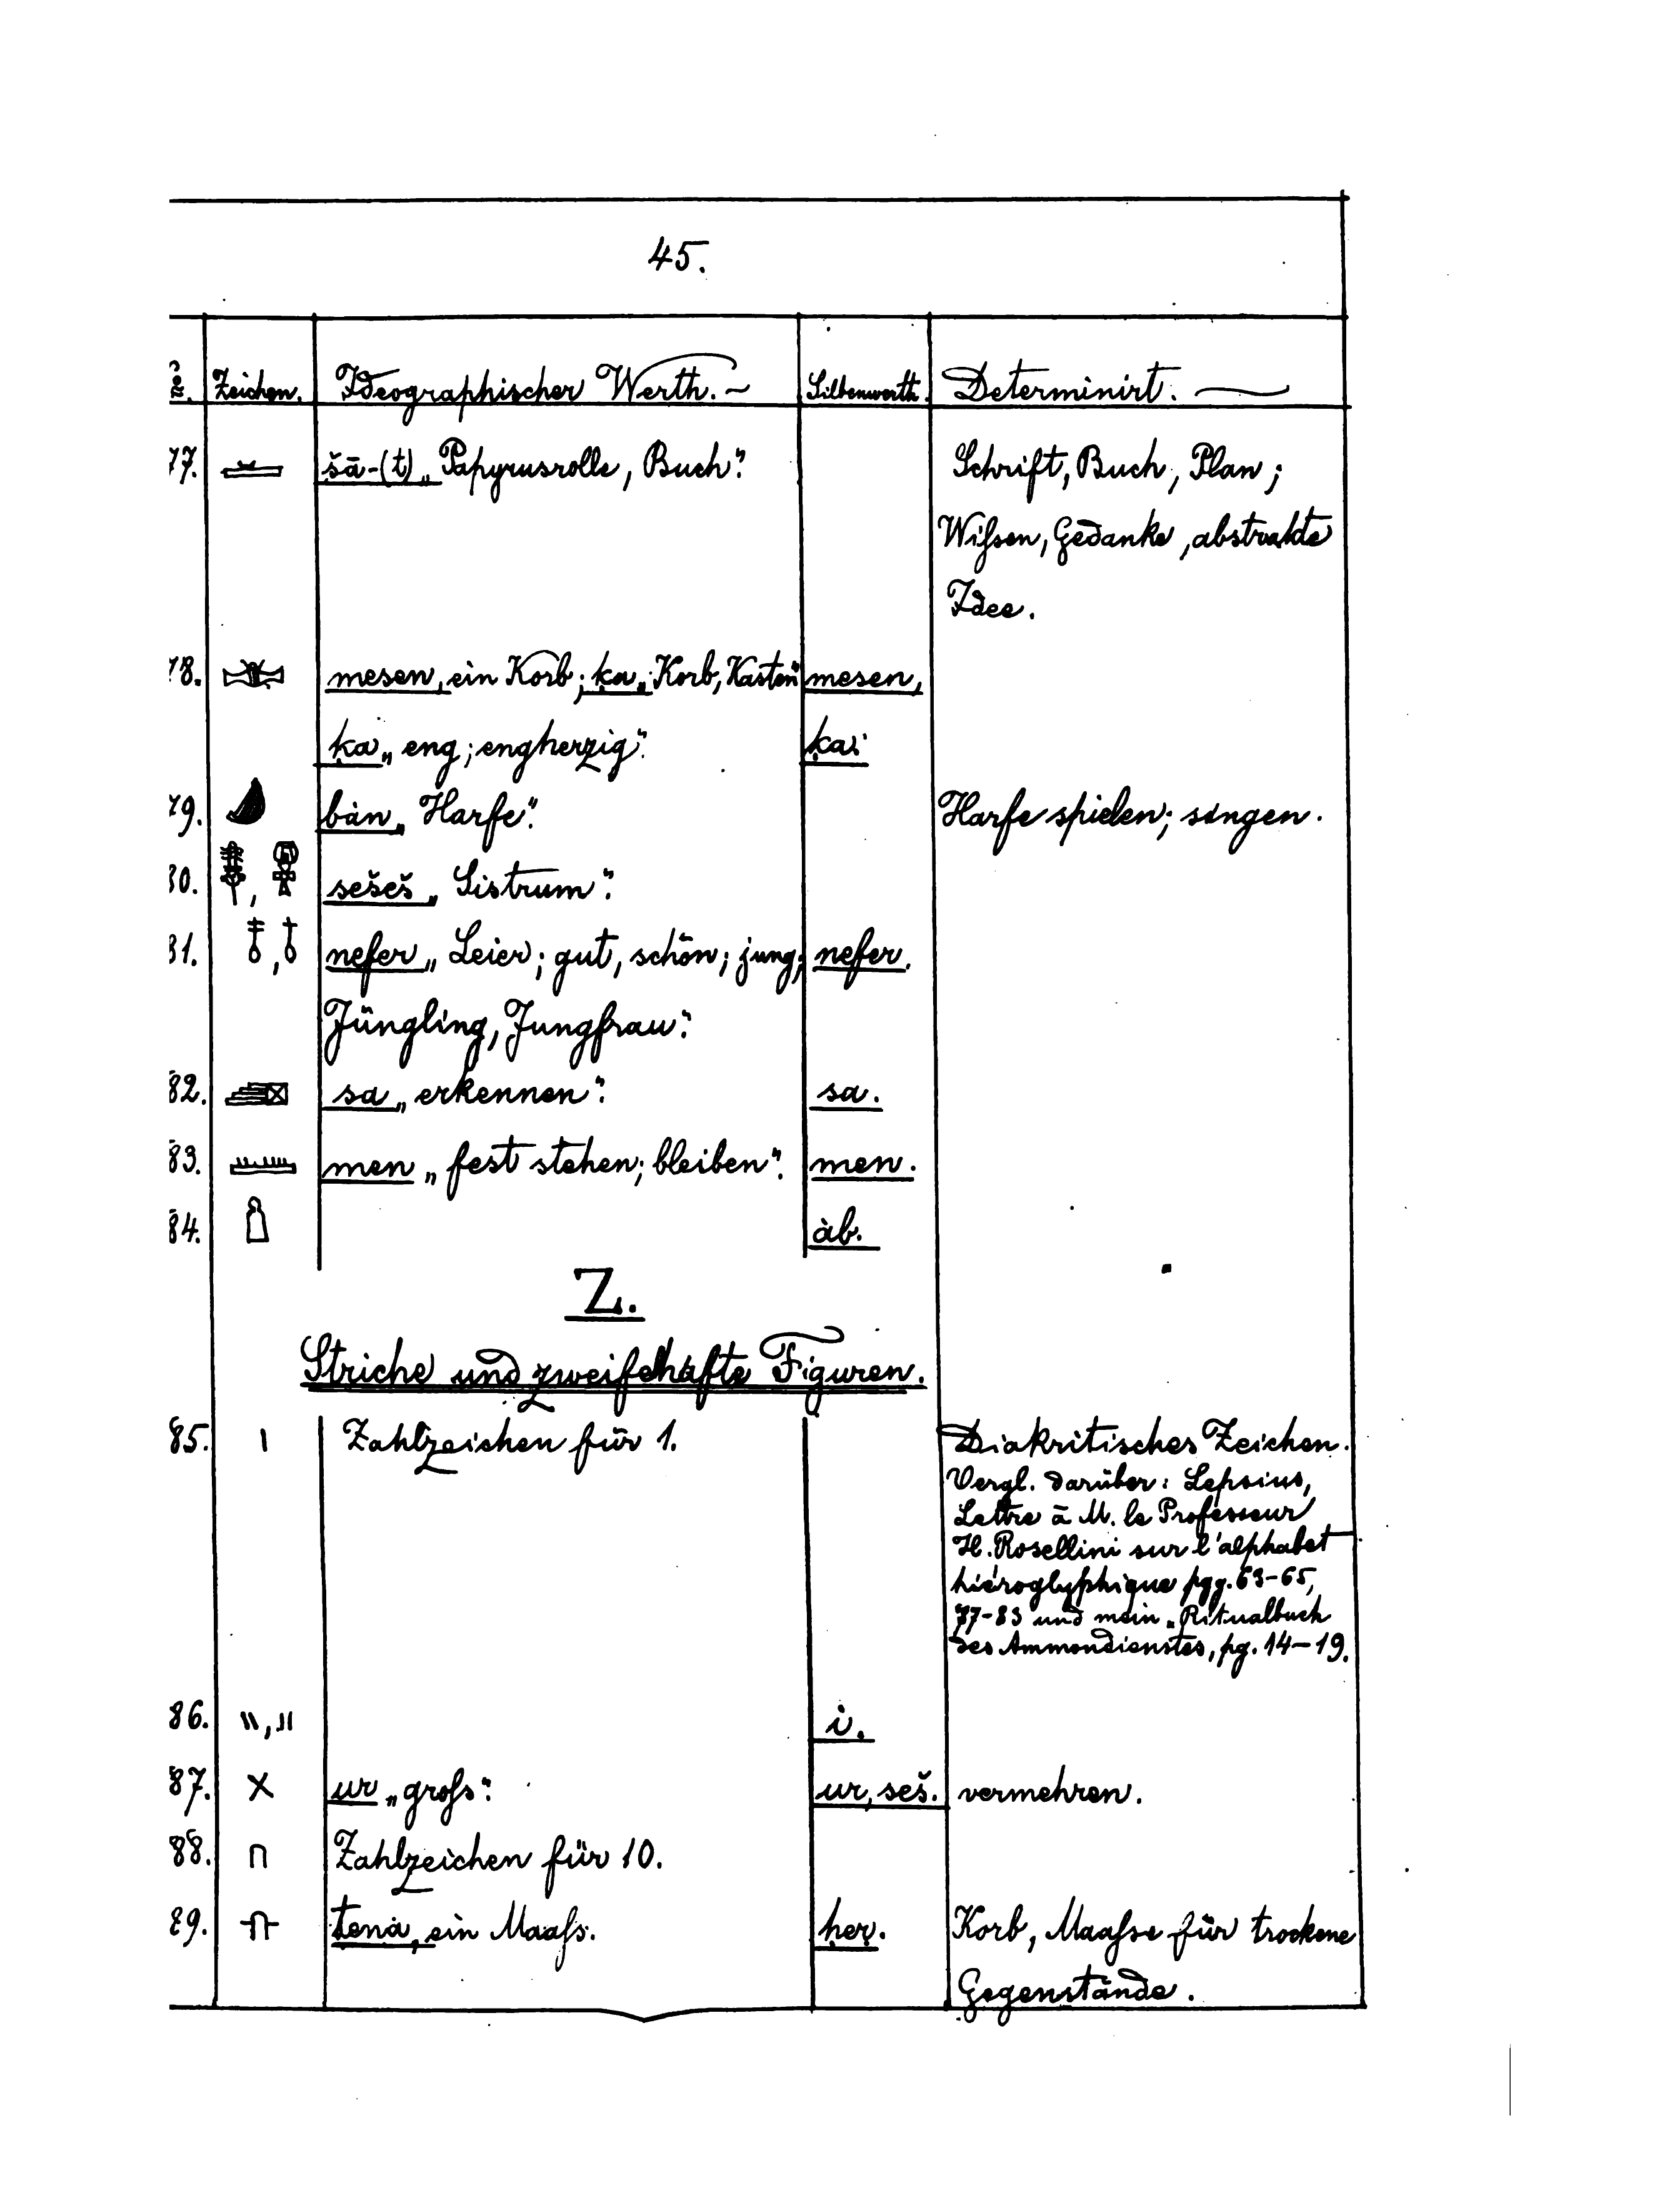 45.
No. Zeichen. Ideographischer Werth. Silbenwerth. Determinirt.
77. šā-(t) „Papyrusrolle, Buch“. Schrift, Buch, Plan;
Wiſsen, Gedanke, abstrakte
Idee.
78. mesen, ein Korb; ḳa „Korb, Kasten“ mesen,
ḳa „eng; engherzig“. ḳa.
79. bȧn „Harfe“. Harfe spielen; singen.
80. , sešeš „Sistrum“.
81. , nefer „Leier; gut, schön; jung; nefer.
Jüngling, Jungfrau“.
82. sa „erkennen“. sa.
83. men „fest stehen; bleiben“. men.
84. ȧb.
Z.
Striche und zweifelhafte Figuren.
85. Zahlzeichen für 1. Diakritisches Zeichen.
Vergl. darüber: Lepsius,
Lettre à M. le Professeur
H. Rosellini sur l'alphabet
hiéroglyphique pgg. 63-65,
77-83 und mein „Ritualbuch
des Ammondienstes, pg. 14-19.
86. , i.
87. ur „groſs“. ur, seš. vermehren.
88. Zahlzeichen für 10.
89. ṭenȧ, ein Maaſs. ḥer. Korb, Maaſse für trockene
Gegenstände.